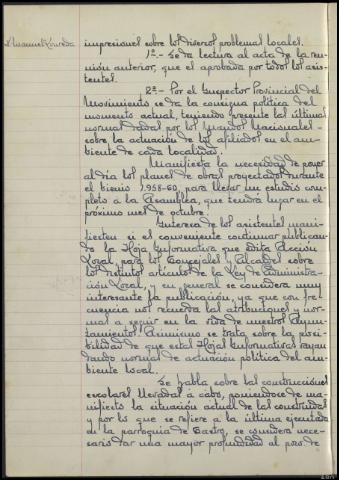 Manuel Loureda
impresiones sobre los diversos problemas locales.
1º.- Se da lectura al acta de la reu-
nión anterior, que es aprobada por todos los asis-
tentes.
2º.- Por el Inspector Provincial del
Movimiento se da la consigna política del
momento actual, teniendo presente las últimas
normas dadas por los Mandos Nacionales
sobre la actuación de los afiliados en el am-
biente de cada localidad.
Manifiesta la necesidad de poner
al día los planes de obras proyectados durante
el bienio 1.958-60, para llevar un estudio com-
pleto a la Asamblea, que tendrá lugar en el
próximo mes de octubre.
Interesa de los asistentes mani-
fiesten si es conveniente continuar publican-
do la Hoja Informativa que edita Acción
Local, para los Concejales y Alcaldes sobre
los distintos artículos de la Ley de Administra-
ción Local, y en general se considera muy
interesante la publicación, ya que con fre-
cuencia nos recuerda las atribuciones y nor-
mas a seguir en la vida de nuestros Ayun-
tamientos. Asimismo se trata sobre la posi-
bilidad de que estas Hojas Informativas vayan
dando normas de actuación política del am-
biente local.
Se habla sobre las construcciones
escolares llevadas a cabo, poniendose de ma-
nifiesto la situación actual de las construidas
y por lo que se refiere a la última ejecutada
en la parroquia de Castro, se considera nece-
sario dar una mayor profundidad al pozo de